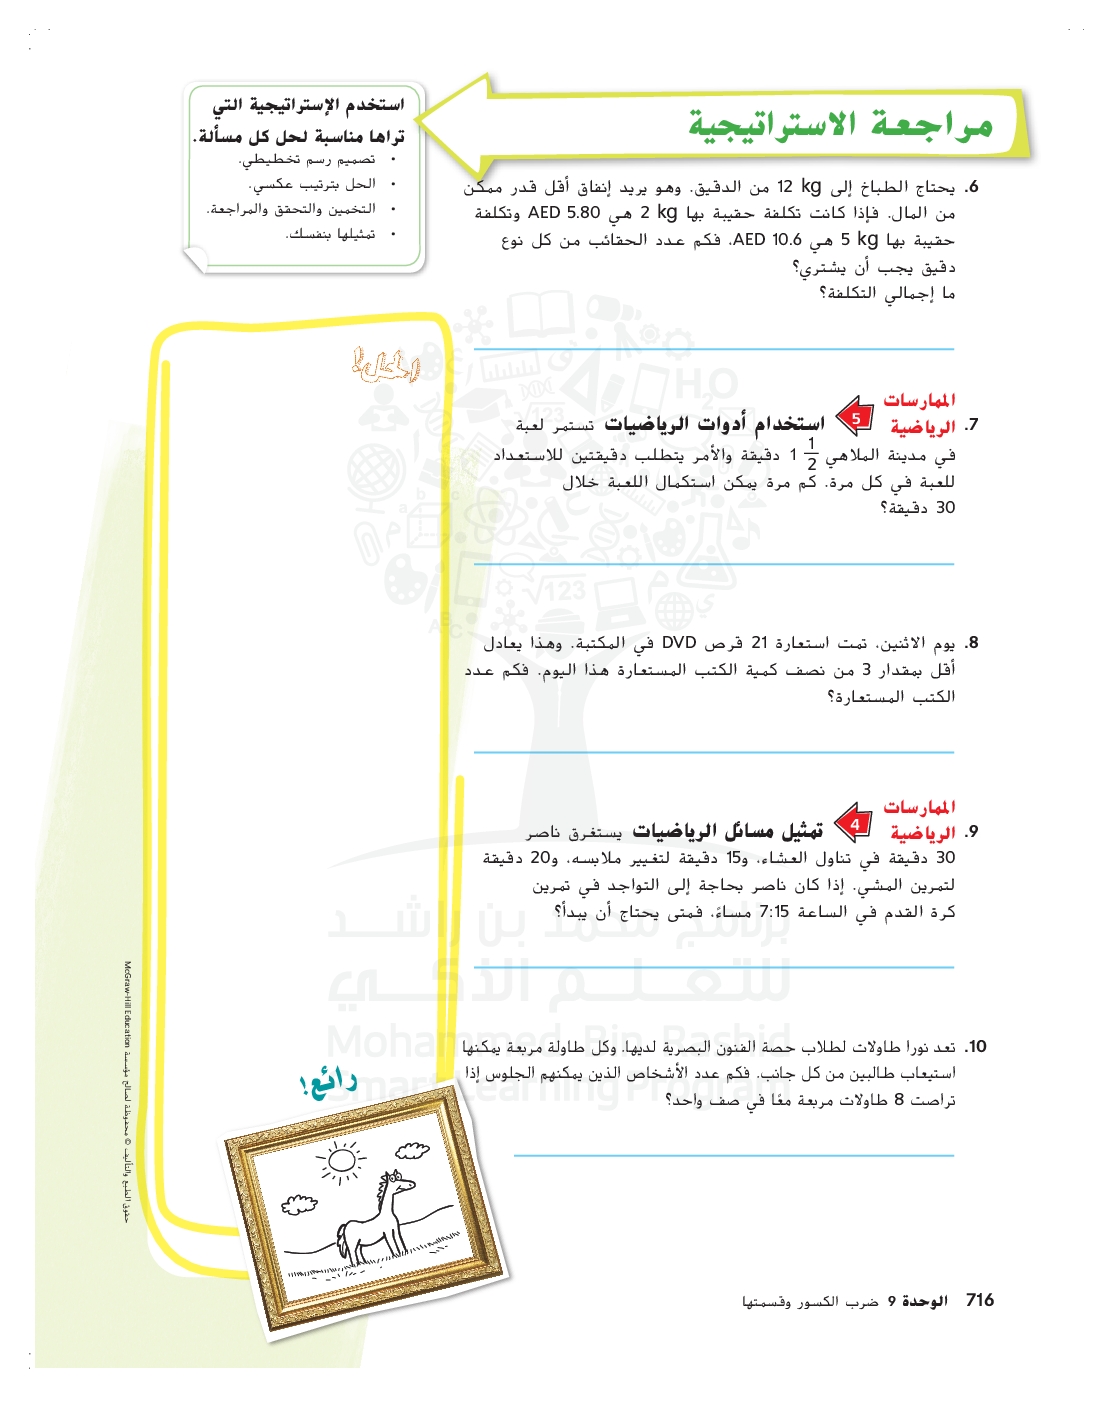 مراجعة الاستراتيجية
استخدم الإستراتيجية التي
تراها مناسبة لحل كل مسألة.
• تصميم رسم تخطيطي.
• الحل بترتيب عكسي.
• التخمين والتحقق والمراجعة.
• تمثيلها بنفسك.
6. يحتاج الطباخ إلى 12 kg من الدقيق. وهو يريد إنفاق أقل قدر ممكن
من المال. فإذا كانت تكلفة حقيبة بها 2 kg هي AED 5.80 وتكلفة
حقيبة بها 5 kg هي AED 10.6، فكم عدد الحقائب من كل نوع
دقيق يجب أن يشتري؟
ما إجمالي التكلفة؟
الحل!
الممارسات
7. الرياضية 5 استخدام أدوات الرياضيات تستمر لعبة
في مدينة الملاهي 1 1/2 دقيقة والأمر يتطلب دقيقتين للاستعداد
للعبة في كل مرة. كم مرة يمكن استكمال اللعبة خلال
30 دقيقة؟
8. يوم الاثنين، تمت استعارة 21 قرص DVD في المكتبة. وهذا يعادل
أقل بمقدار 3 من نصف كمية الكتب المستعارة هذا اليوم. فكم عدد
الكتب المستعارة؟
الممارسات
9. الرياضية 4 تمثيل مسائل الرياضيات يستغرق ناصر
30 دقيقة في تناول العشاء، و15 دقيقة لتغيير ملابسه، و20 دقيقة
لتمرين المشي. إذا كان ناصر بحاجة إلى التواجد في تمرين
كرة القدم في الساعة 7:15 مساءً، فمتى يحتاج أن يبدأ؟
10. تعد نورا طاولات لطلاب حصة الفنون البصرية لديها. وكل طاولة مربعة يمكنها
استيعاب طالبين من كل جانب. فكم عدد الأشخاص الذين يمكنهم الجلوس إذا
تراصت 8 طاولات مربعة معًا في صف واحد؟
رائع!
برنامج محمد بن راشد
للتعلم الذكي
Mohammed Bin Rashid
Smart Learning Program
حقوق الطبع والتأليف © محفوظة لصالح مؤسسة McGraw-Hill Education
716 الوحدة 9 ضرب الكسور وقسمتها